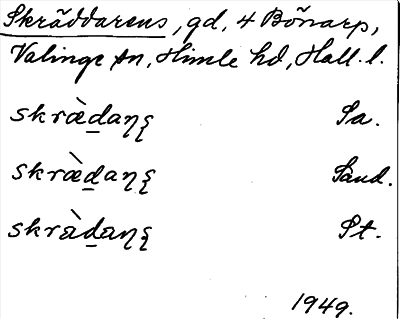 Skräddarens, gd, 4 Bönarp,
Valinge sn, Himle hd, Hall. l.
skræ̀d̲aŋʂ Sa.
skræ̀d̲aŋʂ Sand.
skràd̲aŋʂ St.
1949.